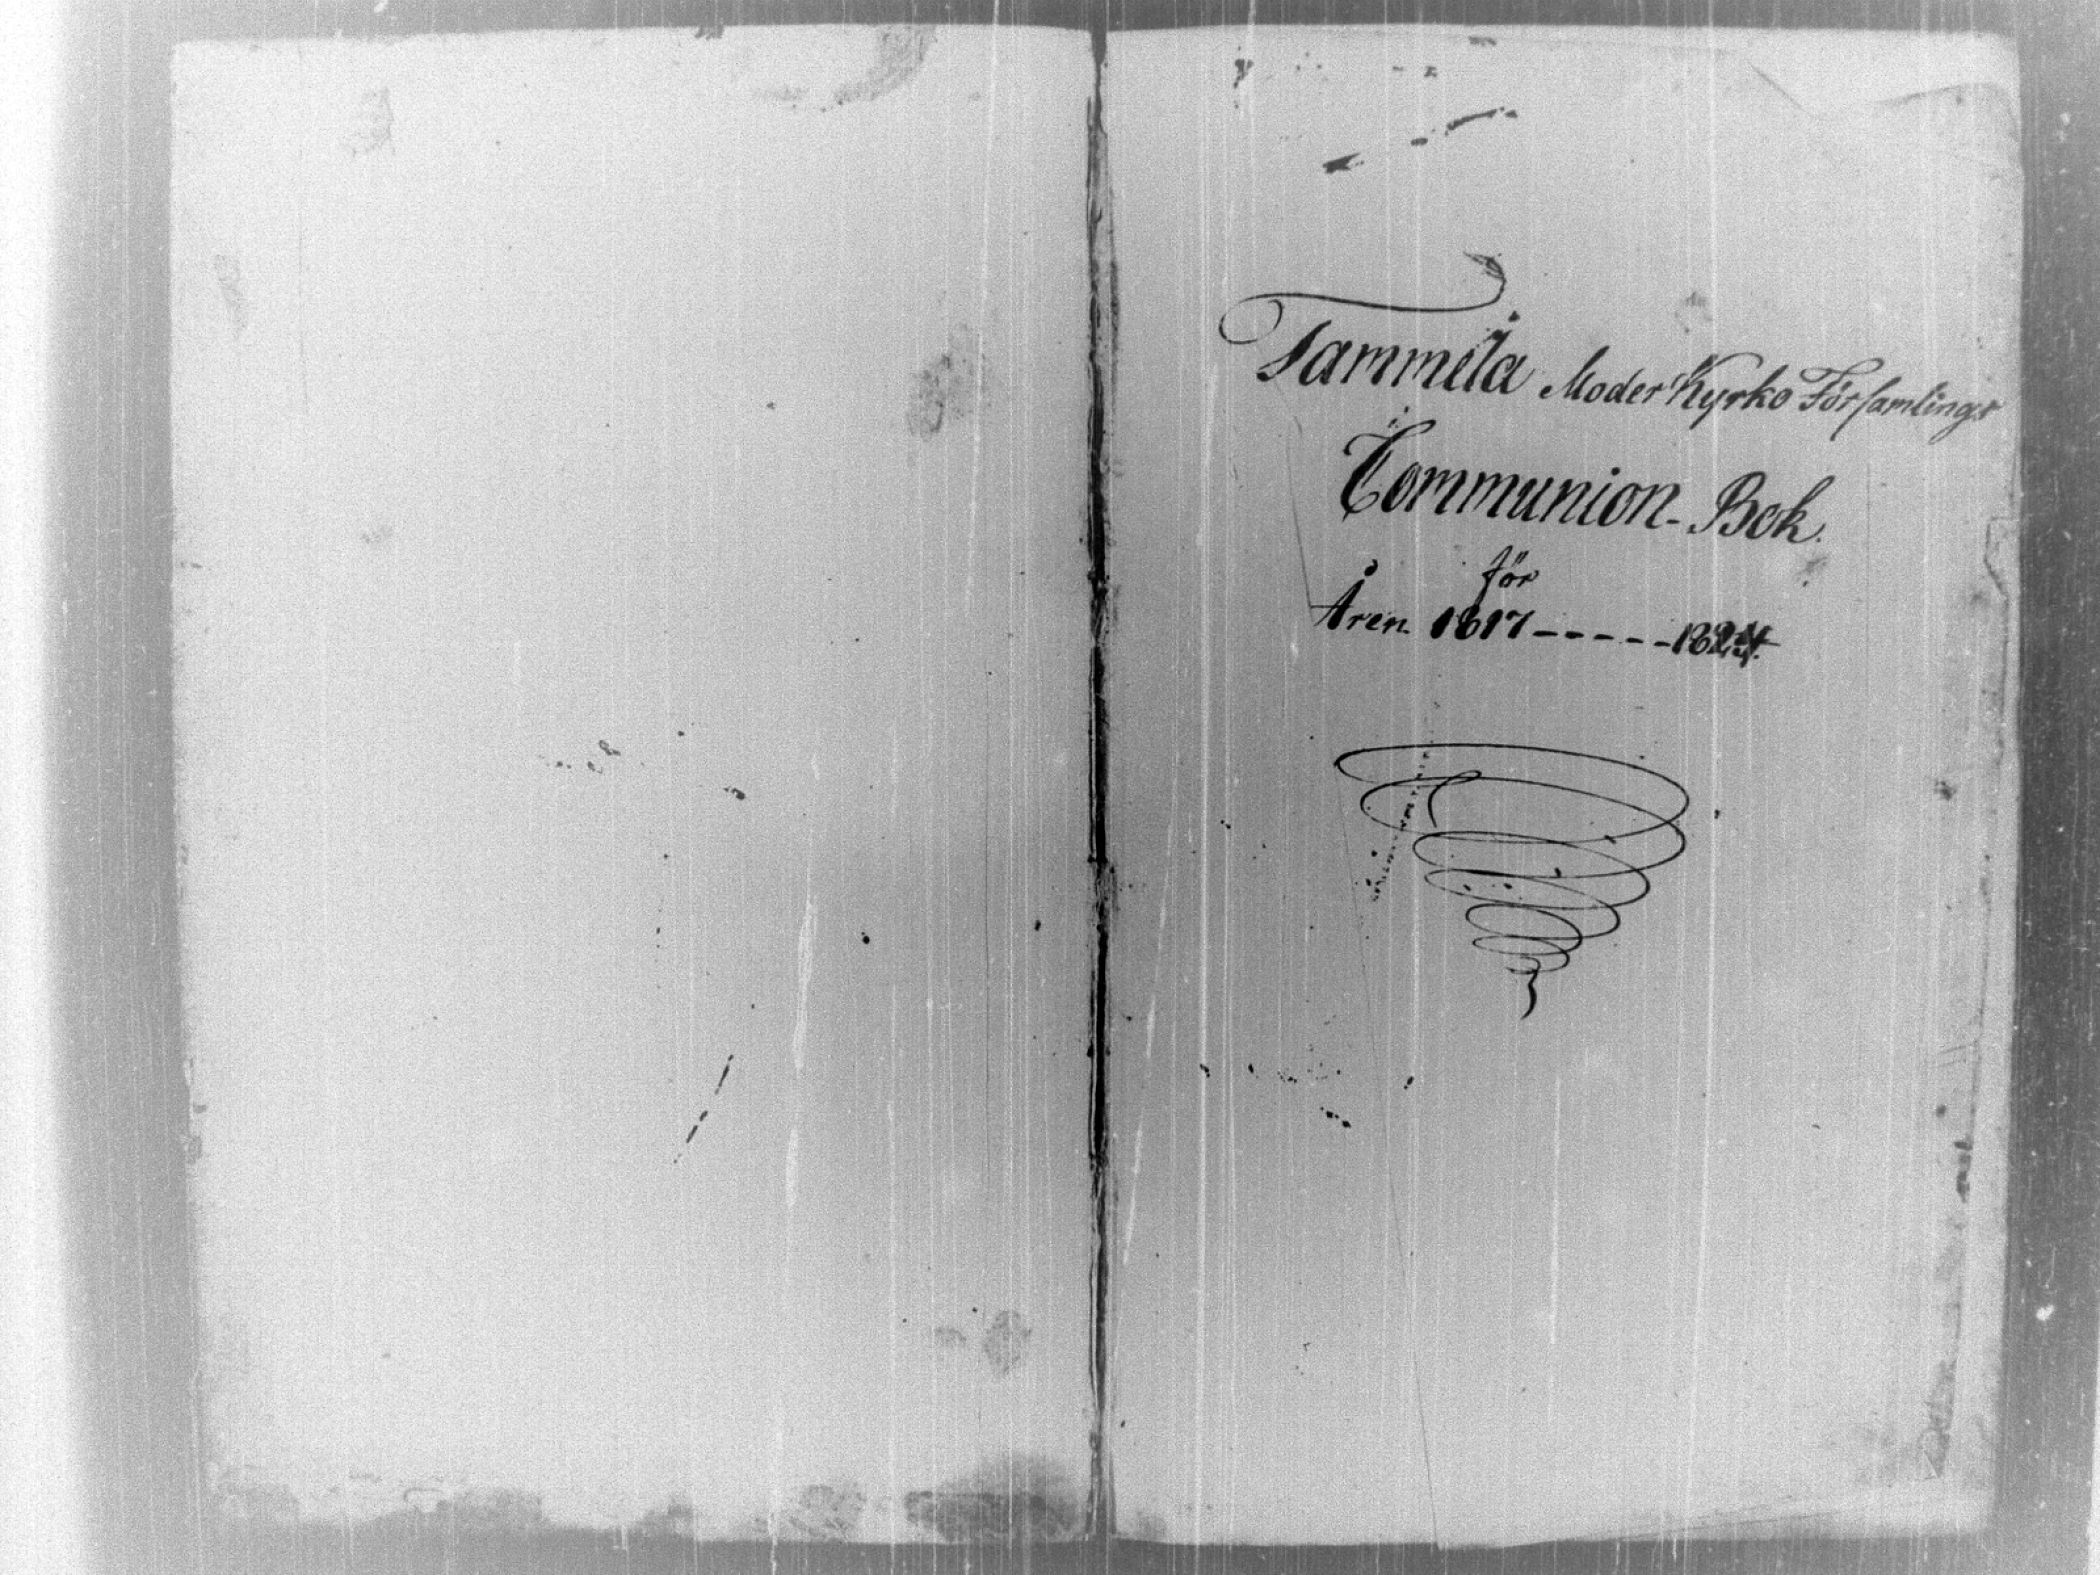 Tammela Moder Kyrko Församlings
Communion-Bok.
för
Åren 1817-----1824.